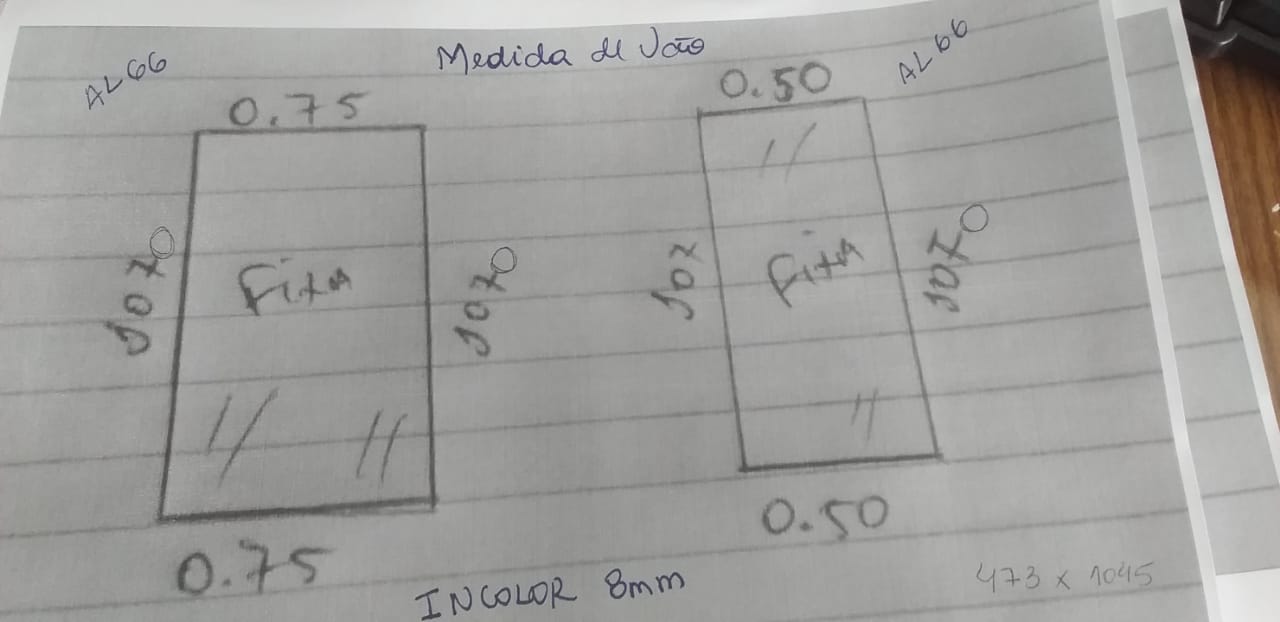 Medida de Vão
AL66
0.75
1070
Fixa
1070
0.75
AL66
0.50
107
Fixa
1070
0.50
INCOLOR 8mm
473 x 1045